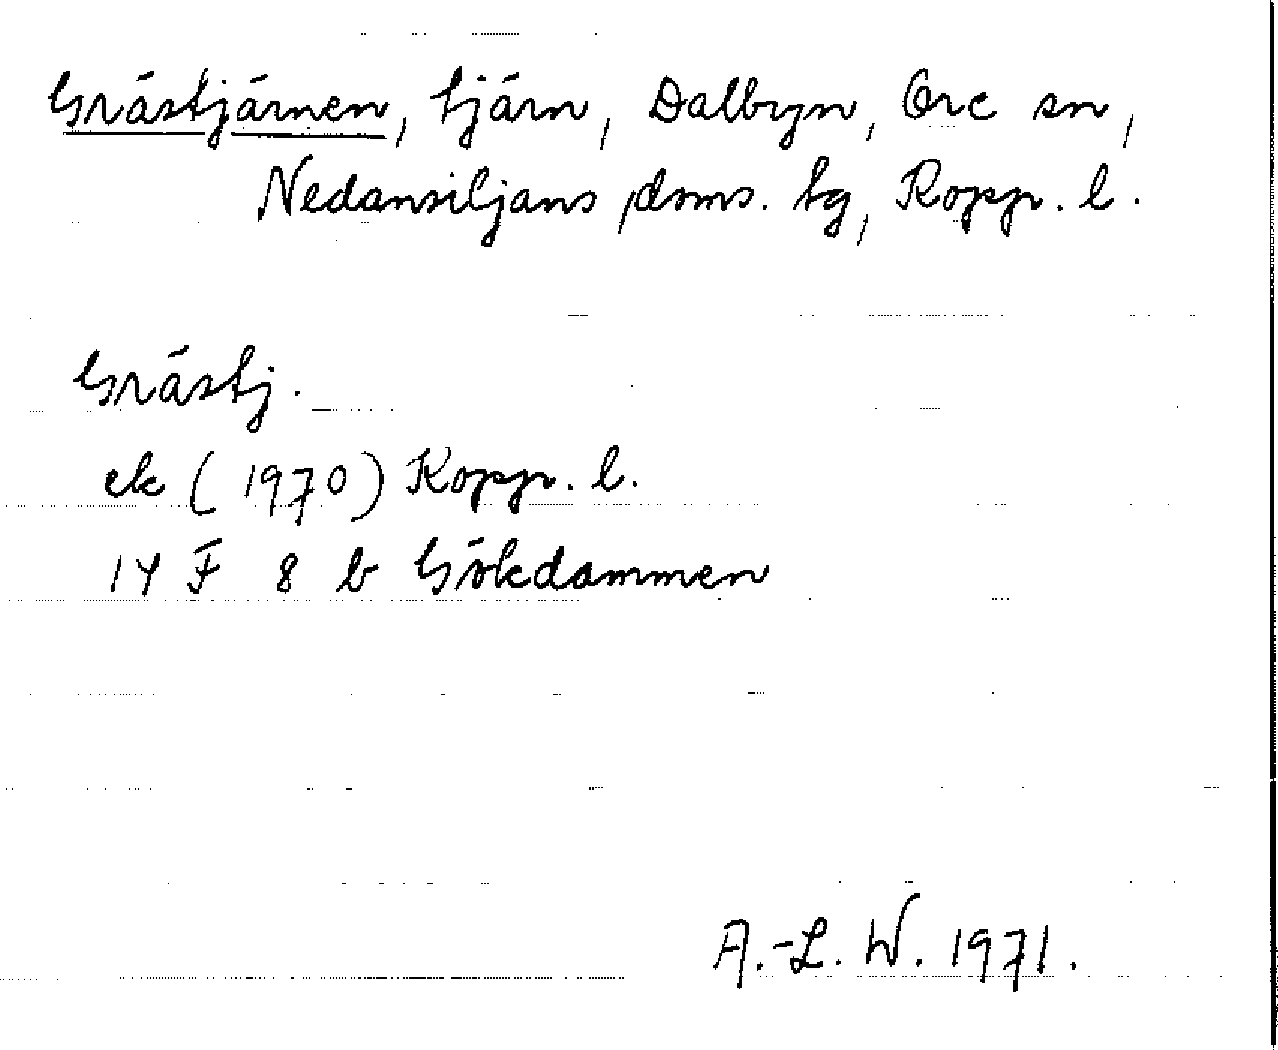 Grästjärnen, tjärn, Dalbyn, Ore sn,
Nedansiljans dsms. tg, Kopp. l.
Grästj.
ek (1970) Kopp. l.
14 F 8 b Gökdammen
A.-L. W. 1971.